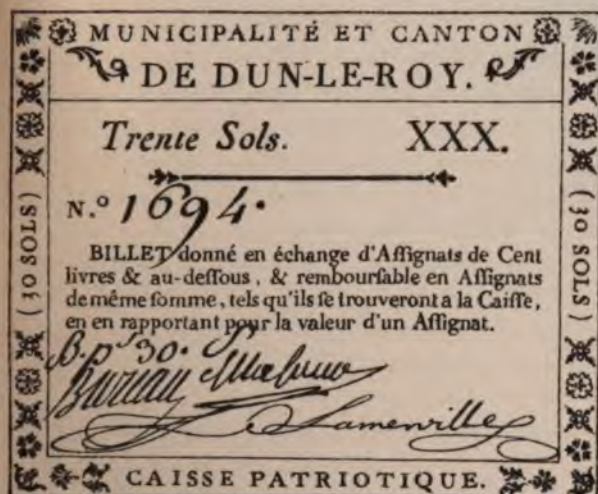 MUNICIPALITÉ ET CANTON
DE DUN-LE-ROY.
Trente Sols. XXX.
N.º 1694.
BILLET donné en échange d'Aſſignats de Cent
livres & au-deſſous, & rembourſable en Aſſignats
de même ſomme, tels qu'ils ſe trouveront a la Caiſſe,
en en rapportant pour la valeur d'un Aſſignat.
B. p.r 30. ſ.
Lamerville
(30 SOLS)
(30 SOLS)
CAISSE PATRIOTIQUE.